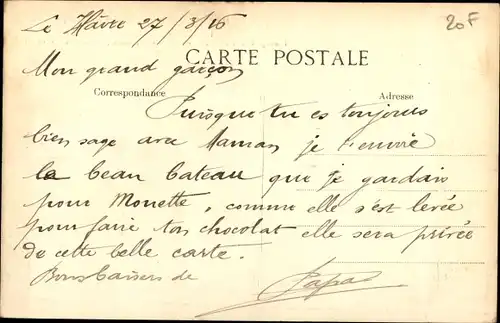 Le Hâvre 27/3/16
20F
CARTE POSTALE
Mon grand garçon
Correspondance
Adresse
Puisque tu es toujours
bien sage avec Maman je t'envoie
le beau bateau que je gardais
pour Monette, comme elle s'est levée
pour faire ton chocolat elle sera privée
de cette belle carte.
Bons baisers de
Papa